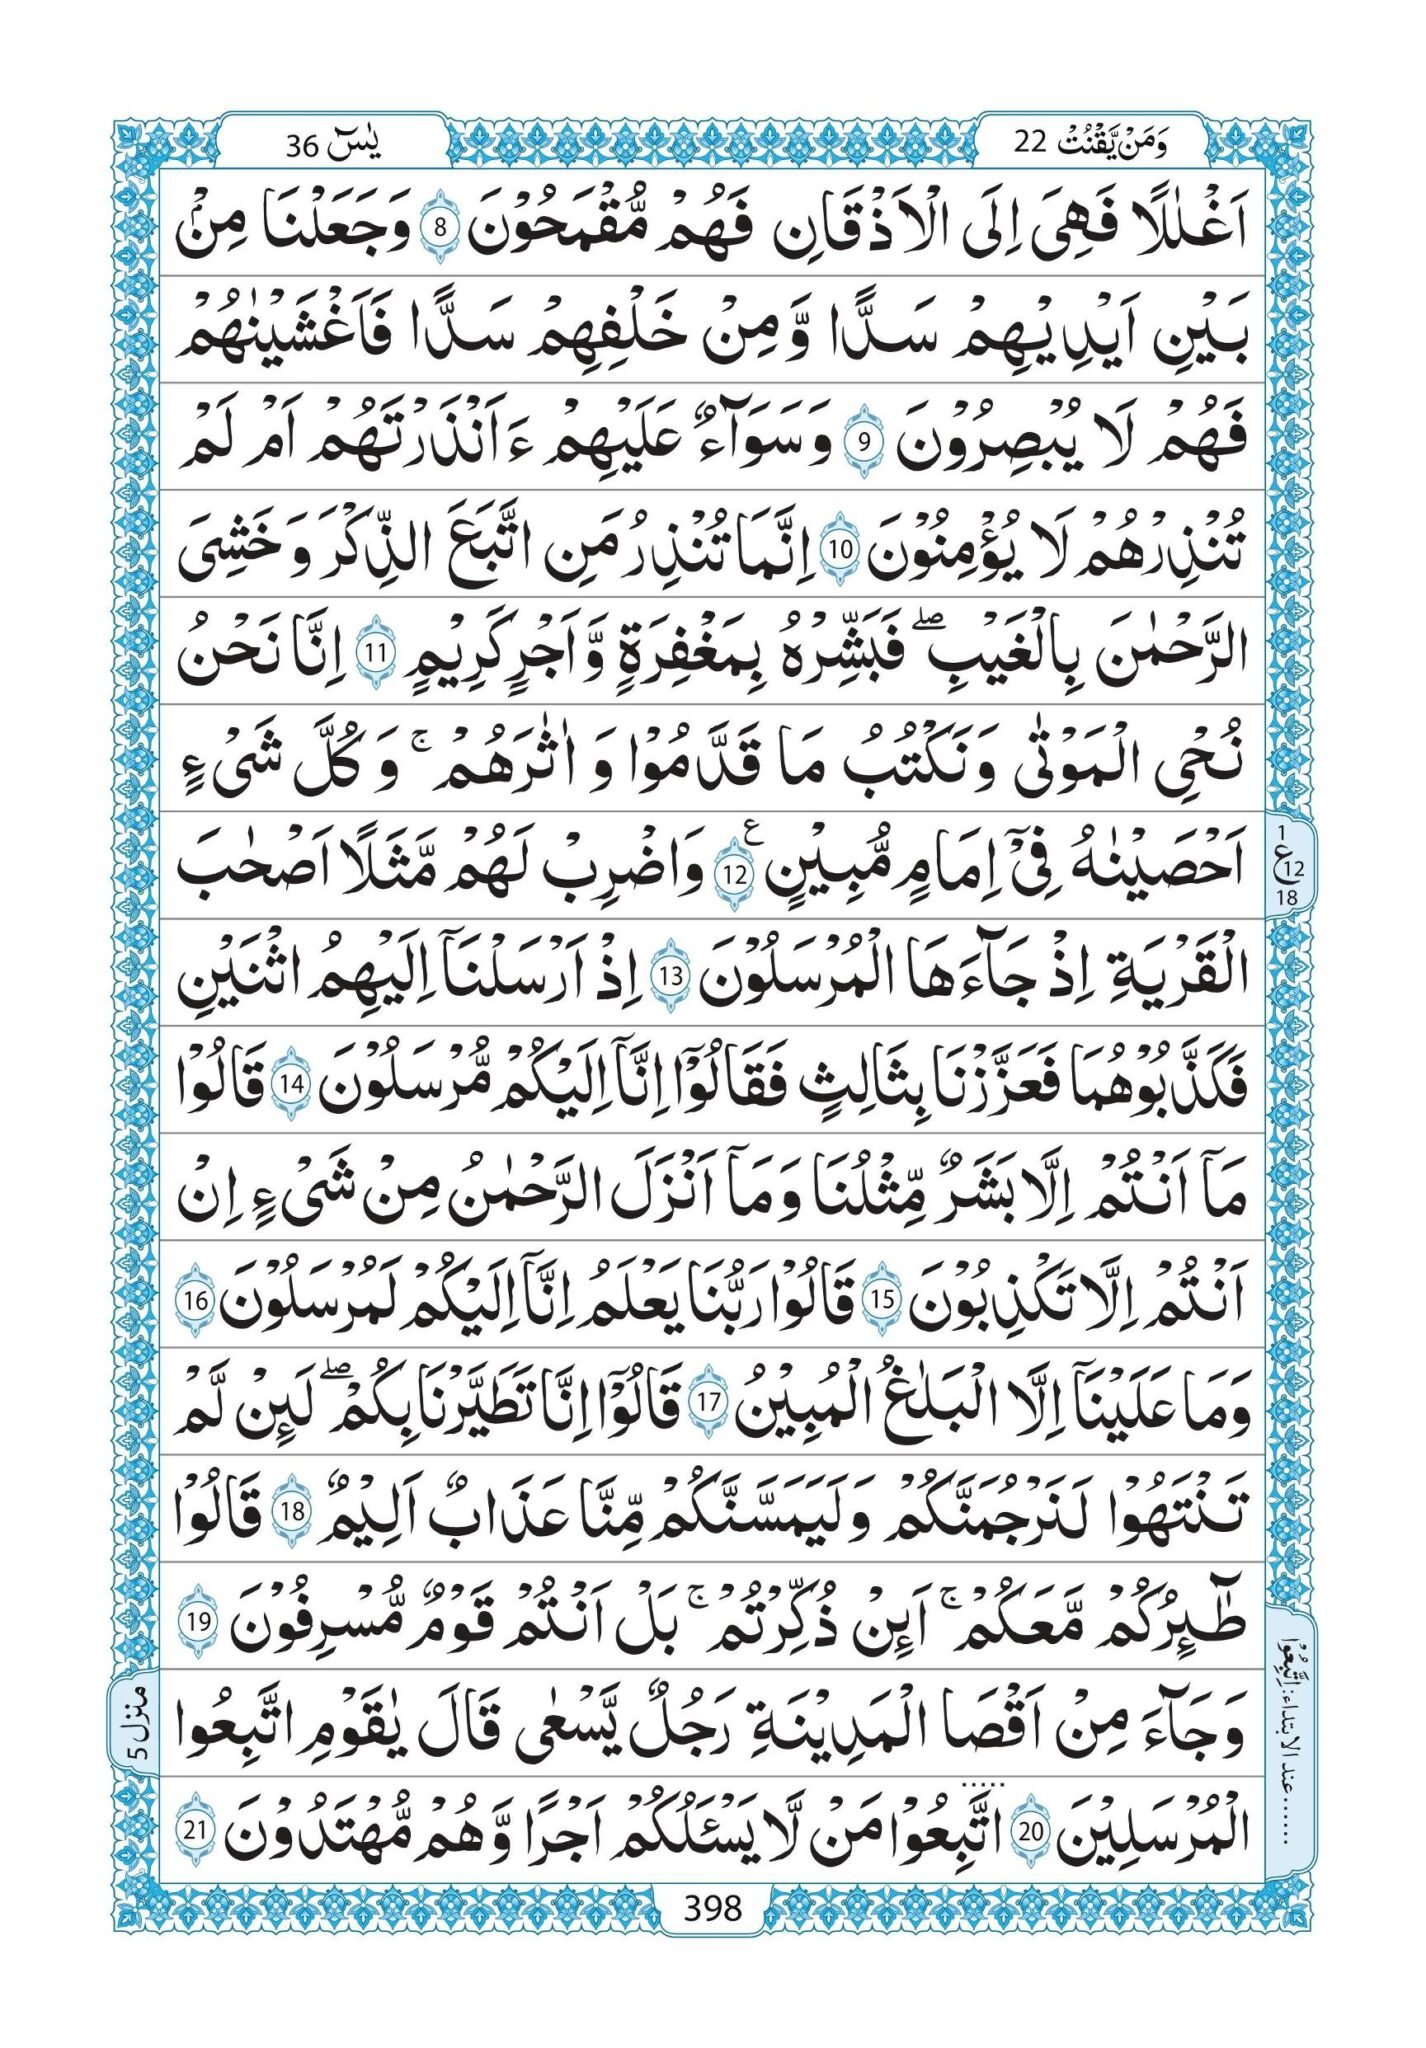 وَمَنْ يَّقْنُتْ 22
يٰسٓ 36
اَغْلٰلًا فَهِىَ اِلَى الْاَذْقَانِ فَهُمْ مُّقْمَحُوْنَ 8 وَجَعَلْنَا مِنْۢ
بَيْنِ اَيْدِيْهِمْ سَدًّا وَّمِنْ خَلْفِهِمْ سَدًّا فَاَغْشَيْنٰهُمْ
فَهُمْ لَا يُبْصِرُوْنَ 9 وَسَوَآءٌ عَلَيْهِمْ ءَاَنْذَرْتَهُمْ اَمْ لَمْ
تُنْذِرْهُمْ لَا يُؤْمِنُوْنَ 10 اِنَّمَا تُنْذِرُ مَنِ اتَّبَعَ الذِّكْرَ وَخَشِىَ
الرَّحْمٰنَ بِالْغَيْبِ ۖ فَبَشِّرْهُ بِمَغْفِرَةٍ وَّاَجْرٍ كَرِيْمٍ 11 اِنَّا نَحْنُ
نُحْىِ الْمَوْتٰى وَنَكْتُبُ مَا قَدَّمُوْا وَاٰثَرَهُمْ ۚ وَكُلَّ شَىْءٍ
اَحْصَيْنٰهُ فِىْٓ اِمَامٍ مُّبِيْنٍ 12 ع وَاضْرِبْ لَهُمْ مَّثَلًا اَصْحٰبَ
الْقَرْيَةِ اِذْ جَآءَهَا الْمُرْسَلُوْنَ 13 اِذْ اَرْسَلْنَآ اِلَيْهِمُ اثْنَيْنِ
فَكَذَّبُوْهُمَا فَعَزَّزْنَا بِثَالِثٍ فَقَالُوْٓا اِنَّآ اِلَيْكُمْ مُّرْسَلُوْنَ 14 قَالُوْا
مَآ اَنْتُمْ اِلَّا بَشَرٌ مِّثْلُنَا وَمَآ اَنْزَلَ الرَّحْمٰنُ مِنْ شَىْءٍ اِنْ
اَنْتُمْ اِلَّا تَكْذِبُوْنَ 15 قَالُوْا رَبُّنَا يَعْلَمُ اِنَّآ اِلَيْكُمْ لَمُرْسَلُوْنَ 16
وَمَا عَلَيْنَآ اِلَّا الْبَلٰغُ الْمُبِيْنُ 17 قَالُوْٓا اِنَّا تَطَيَّرْنَا بِكُمْ ۖ لَئِنْ لَّمْ
تَنْتَهُوْا لَنَرْجُمَنَّكُمْ وَلَيَمَسَّنَّكُمْ مِّنَّا عَذَابٌ اَلِيْمٌ 18 قَالُوْا
طٰٓئِرُكُمْ مَّعَكُمْ ۚ اَئِنْ ذُكِّرْتُمْ ۚ بَلْ اَنْتُمْ قَوْمٌ مُّسْرِفُوْنَ 19
وَجَآءَ مِنْ اَقْصَا الْمَدِيْنَةِ رَجُلٌ يَّسْعٰى قَالَ يٰقَوْمِ اتَّبِعُوا
الْمُرْسَلِيْنَ 20 اتَّبِعُوْا مَنْ لَّا يَسْـَٔلُكُمْ اَجْرًا وَّهُمْ مُّهْتَدُوْنَ 21
1
ع 12
18
......عند الابتداء: اِتَّبِعُوْا
منزل 5
398